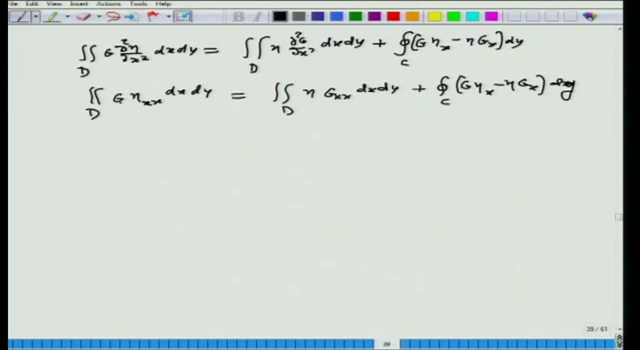 Edit View Insert Actions Tools Help
∬_D G ∂²η/∂x² dxdy = ∬_D η ∂²G/∂x² dxdy + ∮_C (Gη_x − ηG_x) dy
∬_D G η_xx dxdy = ∬_D η G_xx dxdy + ∮_C (Gη_x − ηG_x) dy